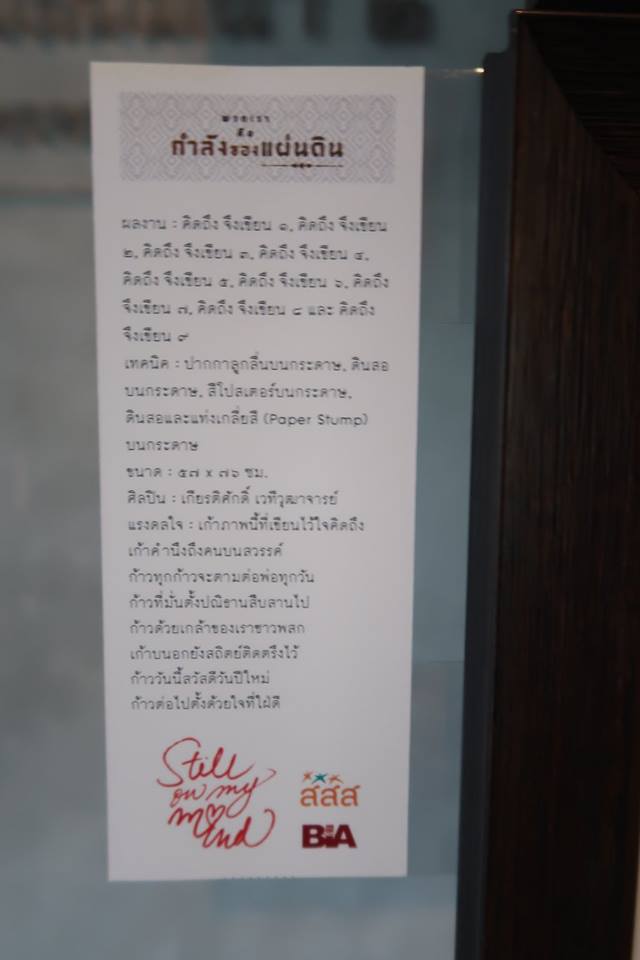 พวกเรา
คือ
กำลังของแผ่นดิน
ผลงาน : คิดถึง จึงเขียน ๑, คิดถึง จึงเขียน
๒, คิดถึง จึงเขียน ๓, คิดถึง จึงเขียน ๔,
คิดถึง จึงเขียน ๕, คิดถึง จึงเขียน ๖, คิดถึง
จึงเขียน ๗, คิดถึง จึงเขียน ๘ และ คิดถึง
จึงเขียน ๙
เทคนิค : ปากกาลูกลื่นบนกระดาษ, ดินสอ
บนกระดาษ, สีโปสเตอร์บนกระดาษ,
ดินสอและแท่งเกลี่ยสี (Paper Stump)
บนกระดาษ
ขนาด : ๕๗ x ๗๖ ซม.
ศิลปิน : เกียรติศักดิ์ เวทีวุฒาจารย์
แรงดลใจ : เก้าภาพนี้ที่เขียนไว้ใจคิดถึง
เก้าคำนึงถึงคนบนสวรรค์
ก้าวทุกก้าวจะตามต่อพ่อทุกวัน
ก้าวที่มั่นตั้งปณิธานสืบสานไป
ก้าวด้วยเกล้าของเราชาวพสก
เก้าบนอกยังสถิตย์ติดตรึงไว้
ก้าววันนี้สวัสดีวันปีใหม่
ก้าวต่อไปตั้งด้วยใจที่ใฝ่ดี
Still
on my
mind
สสส
BIA